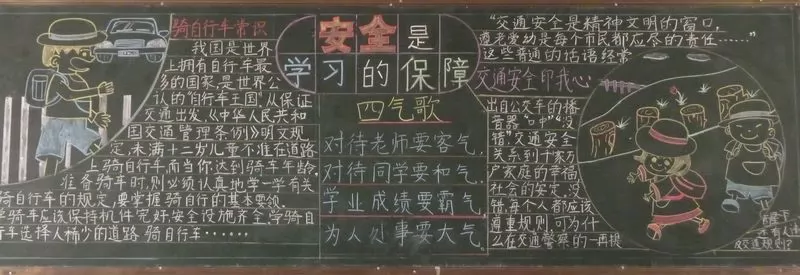 骑自行车常识
我国是世界
上拥有自行车最
多的国家,是世界公
认的"自行车王国".从保证
交通出发,《中华人民共和
国交通管理条例》明文规
定,未满十二岁儿童不准在道路
上骑自行车,而当你达到骑车年龄,
准备骑车时,则必须认真地学一学有关
骑自行车的规定,要掌握骑自行的基本要领。
骑车应该保持机件完好,安全设施齐全,学骑自
行车选择人稀少的道路骑自行车……
安全是
学习的保障
四气歌
对待老师要客气,
对待同学要和气,
学业成绩要霸气,
为人处事要大气。
"交通安全是精神文明的窗口,
遵老爱幼是每个市民都应尽的责任……"
这些普通的话语经常
交通安全印我心
出自公交车的播
音器"口中"没
错,交通安全
关系到千家万
户家庭的幸福,
社会的安定,没
错,每个人都应该
遵重规则,可为什
么在交通警察的一再提
醒下
还有人违
反交通规则?